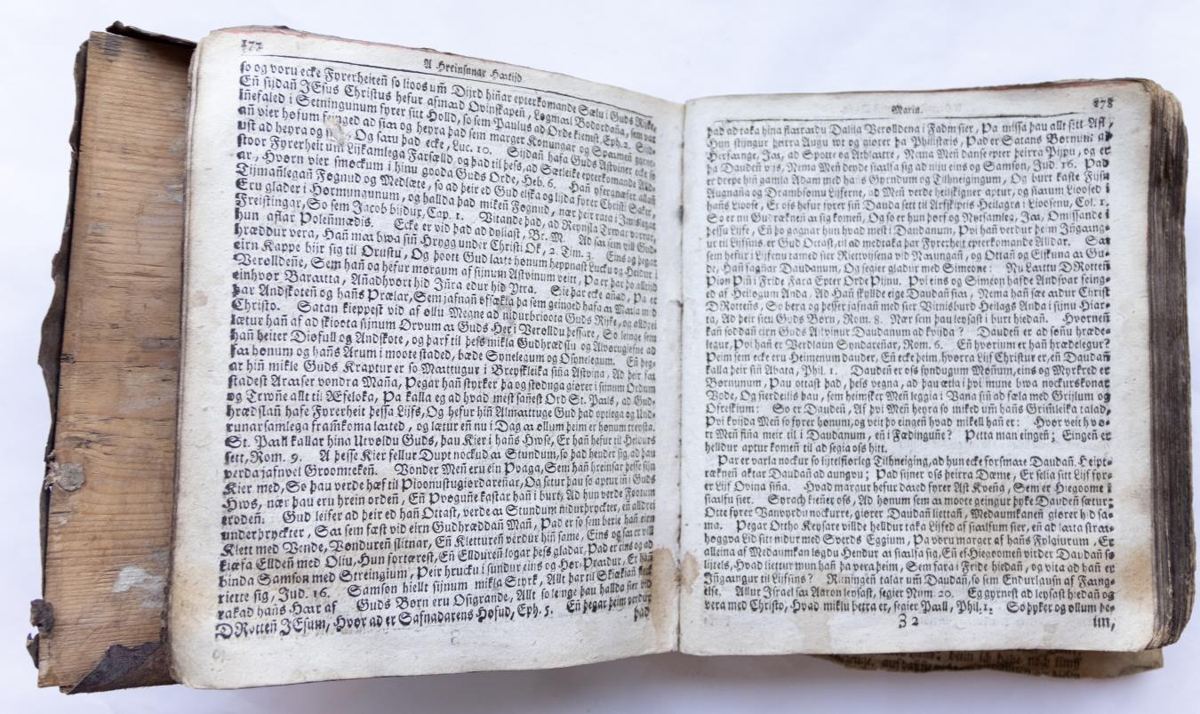 177
A Hreinsunar Haatijd
so og voru ecke Fyrerheiteñ so lioos um Dijrd hiñar epterkomande Sælu i Guds Rijke,
Eñ sijdañ JEsus Christus hefur afmæd Ovinskapeñ, Løgmæl Bodordaña, sem var
iñefaled i Setningunum fyrer sitt Holld, so sem Paulus ad Orde kiemst, Eph. 2.
an vier høfum feinged ad siaa og heyra þad sem marger Konungar og Spaameñ
ust ad heyra og siaa, Og saau þad ecke, Luc. 10. Sijdañ hafa Guds Astviner ecke so
stoor Fyrerheit um Lijkamlega Farsælld og þad til þess, ad Sætleike epterkomande
ar, Hvørn vier smøckum i hinu gooda Guds Orde, Heb. 6.
Tijmañlegañ Føgnud og Medlæte, so ad þeir ed Gud elska og lijda fyrer Christi Saker,
Eru glader i Hørmungunum, og hallda þad mikeñ Føgnud, nær þeir rata i
Freistingar, So sem Jacob bijdur, Cap. 1. Vitande þad, ad Reynsla Trwar vorrar,
hun aflar Poleñmædis. Ecke er vid þad ad dyliast, Br. M. Ad saa sem vill Gud-
hræddur vera, Hañ maa bwa siñ Hrygg under Christi Ok, 2. Tim. 3. Eins og þegar
eirn Kappe biir sig til Orustu, Og þoott Gud læte honum heppnast Lucku og Heidur i
Verølldeñe, Sem hañ og hefur mørgum af sijnum Astvinum veitt, Paa er þar þo allijd
einhvør Baraatta, Añadhvørt hid Jñra edur hid Ytra.
þar Andskoteñ og hañs Prælar, Sem jafnañ ofsækia þa sem geinged hafa aa Maala m;d
Christo. Satan kieppest vid af øllu Megne ad nidurbrioota Guds Rijke, og alldrei
lætur hañ af ad skioota sijnum Ørvum aa Guds Her i Verølldu þessare, So leinge sem
hañ heiter Diøfull og Andskote, og þarf til þess mikla Gudhrædslu og Alvørugiefne ad
faa honum og hañs Arum i moote staded, bæde Synelegum og Osynelegum. Eñ þeg-
ar hiñ mikle Guds Kraptur er so Maattugur i Breyskleika siña Astvina, Ad þeir faa
stadest Araaser vondra Maña, Þegar hañ styrker þa og stødugа giører i sinum Ordum
og Trwñe allt til Æfeloka, Þa kalla eg ad hvad mest sañest Ord St. Paals, ad Gud-
hrædslañ hafe Fyrerheit þessa Lijfs, Og hefur hiñ Almaattuge Gud þad opelega og Und-
runarsamlega framkoma laated, og lætur eñ nu i Dag aa øllum þeim er honum treysta.
St. Paall kallar hina Utvøldu Guds, þau Kier i hañs Hwse, Er hañ hefur til Heidurs
sett, Rom. 9. A þesse Kier fellur Dupt nockud aa Stundum, so þad hender sig, ad þau
verda jafnvel Groomteken. Vonder Meñ eru ein Þvaga, Sem hañ hreinsar þesse sijn
Kier med, So þau verde hæf til Þioonustugiørdareñar, Og setur þau so aptur iñ i Guds
Hws, nær þau eru hrein ordeñ, Eñ Þvøguñe kastar hañ i burt, Ad hun verde Footum
trodeñ. Gud leifer ad þeir ed hañ Ottast, verde aa Stundum nidurþrycktter, eñ alldrei
underþrycker, Saa sem fæst vid eirn Gudhræddañ Mañ, Þad er so sem berie hañ eirn
Klett med Vende, Vøndureñ slitnar, Eñ Klettureñ verdur hiñ same, Eins og saa er vill
kiæfa Elldeñ med Oliu, Hun fortærest, Eñ Ellldureñ logar þess gladar, Þad er eins og ad
binda Samson med Streingium, Þeir hrucku i sundur eins og Hør-Þrædur, Er hañ
rierte sig, Jud. 16. Samson hiellt sijnum mikla Styrk, Allt þar til Skiækiañ
rakad hañs Haar af. Guds Børn eru Osigrande, Allt so leinge þau hallda sier vid
DRotteñ JEsum, Hvør ad er Safnadarens Høfud, Eph. 5. Eñ þegar þeim verdur
þad
Mariæ.
178
þad ad taka hina flaaraedu Dalila Verølldena i Fadm sier, Þa missa þau allt sitt Afl,
Hun stijngur þeirra Augu wt og giører þa Philistæis, Þad er Satans Børnum ad
Herfaange, Jaa, ad Spotte og Athlaatre, Nema Meñ danse epter þeirra Pijpu, og er
þa Daudeñ vijs, Nema Meñ heyde siaalfa sig ad nijn eins og Samson, Jud. 16. Þad
er deepe hiñ gamla Adam med hañs Gyrndum og Tilhneigingum, Og burt kaste Fijsu
Augnaña og Drambsømu Lijferne, ad Meñ verde heilskygner aptur, og siaum Lioosed i
hañs Lioose, Er oss hefur fyrer siñ Dauda sett til Arfskiptis Heilagra i Lioosenu, Col. 1.
So er nu Gudræknen aa sig komeñ, Og so er hun þørf og Nytsamleg, Jaa, Ømissande i
þessu Lijfe, Eñ þo gagnar hun hvad mest i Daudanum, Þvi hañ verdur þeim Jñgaang-
ur til Lijfsins er Gud Ottast, til ad medtaka þar Fyrerheit epterkomande Alldar. Saa
sem hefur i Lijfenu tamed sier Riettvijsena vid Naaungañ, og Ottañ og Elskuna aa Gu-
de, Hañ fagnar Daudanum, Og seger gladur med Simeone: Nu Laattu DRotteñ
Þion Þiñ i Fride Fara Epter Orde Þijnu. Þvi eins og Simeon hafde Andsvar feing-
ed af Heilogum Anda, Ad Hañ skyllde eige Daudañ siaa, Nema hañ sæe aadur Christ
DRotteñs, So bera og þesser jafnañ med sier Vitnisburd Heilags Anda i sijnu Hiar-
ta, Ad þeir seu Guds Børn, Rom. 8. Nær sem þau leysast i burt hiedañ. Hvørneñ
kañ soddañ eirn Guds Astvinur Daudanum ad kvijda? Daudeñ er ad sønu hræde-
legur, Þvi hañ er Verdlaun Syndareñar, Rom. 6. Eñ hvørium er hañ hrædelegur?
Þeim sem ecke eru Heimenum dauder, Eñ ecke þeim, hvørra Lijf Christur er, eñ Daudañ
kalla þeir siñ Abata, Phil. 1. Daudeñ er oss syndugum Mønum, eins og Myrkred er
Børnunum, Þau ottast þad, þess vegna, ad þau ætla i þvi mune bwa nockurskonar
Vode, Og sierdeilis þau, sem heimsker Meñ leggia i Vana siñ ad fæla med Grijlum og
Ofreskium: So er Daudeñ, Af þvi Meñ heyra so miked um hañs Grimleika talad,
Þvi kvijda Meñ so fyrer honum, og veit þo eingeñ hvad mikell hañ er: Hvør veit hvo-
rt Meñ fiña meir til i Daudanum, eñ i Fædinguñe? Þetta mañ eingeñ; Eingeñ er
helldur aptur komeñ til ad segia oss hitt.
Þar er varla nockur so lijtelfiørleg Tilhneiging, ad hun ecke forsmaae Daudañ. Heipt-
rækneñ aktar Daudañ ad aungvu; Þad sijner oss þeirra Dæme, Er setia sitt Lijf fyr-
er Lijf Ovina siña. Hvad margur hefur daaid fyrer Ast Kveña, Sem er Hiegoome i
siaalfu sier. Sorgeñ kieñer oss, Ad honum sem aa moote geingur þyke Daudeñ sætur:
Otte fyrer Vanvyrdu nockurre, giører Daudañ liettañ, Medaumkaneñ giører h;d sa-
ma. Þegar Ortho Keysare villde helldur taka Lijfed af siaalfum sier, eñ ad laata straa-
høggva Lid sitt nidur med Sverds Eggium, Þa voru marger af hañs Fylgiurum, Er
alleina af Medaumkan løgdu Hendur aa siaalfa sig, Eñ ef Hiegomeñ virder Daudañ so
lijtels, Hvad liettur mun hañ þa vera þeim, Sem fara i Fride hiedañ, og vita ad hañ er
Jñgaangur til Lijfsins? Ritningeñ talar um Daudañ, so sem Endurlausn af Faang-
else. Allur Israel saa Aaron leysast, seger Num. 20. Eg gyrnest ad leysast hiedañ og
vera med Christo, Hvad miklu betra er, seger Paall, Phil. 1. So þyker og øllum þe-
Z 2
im,